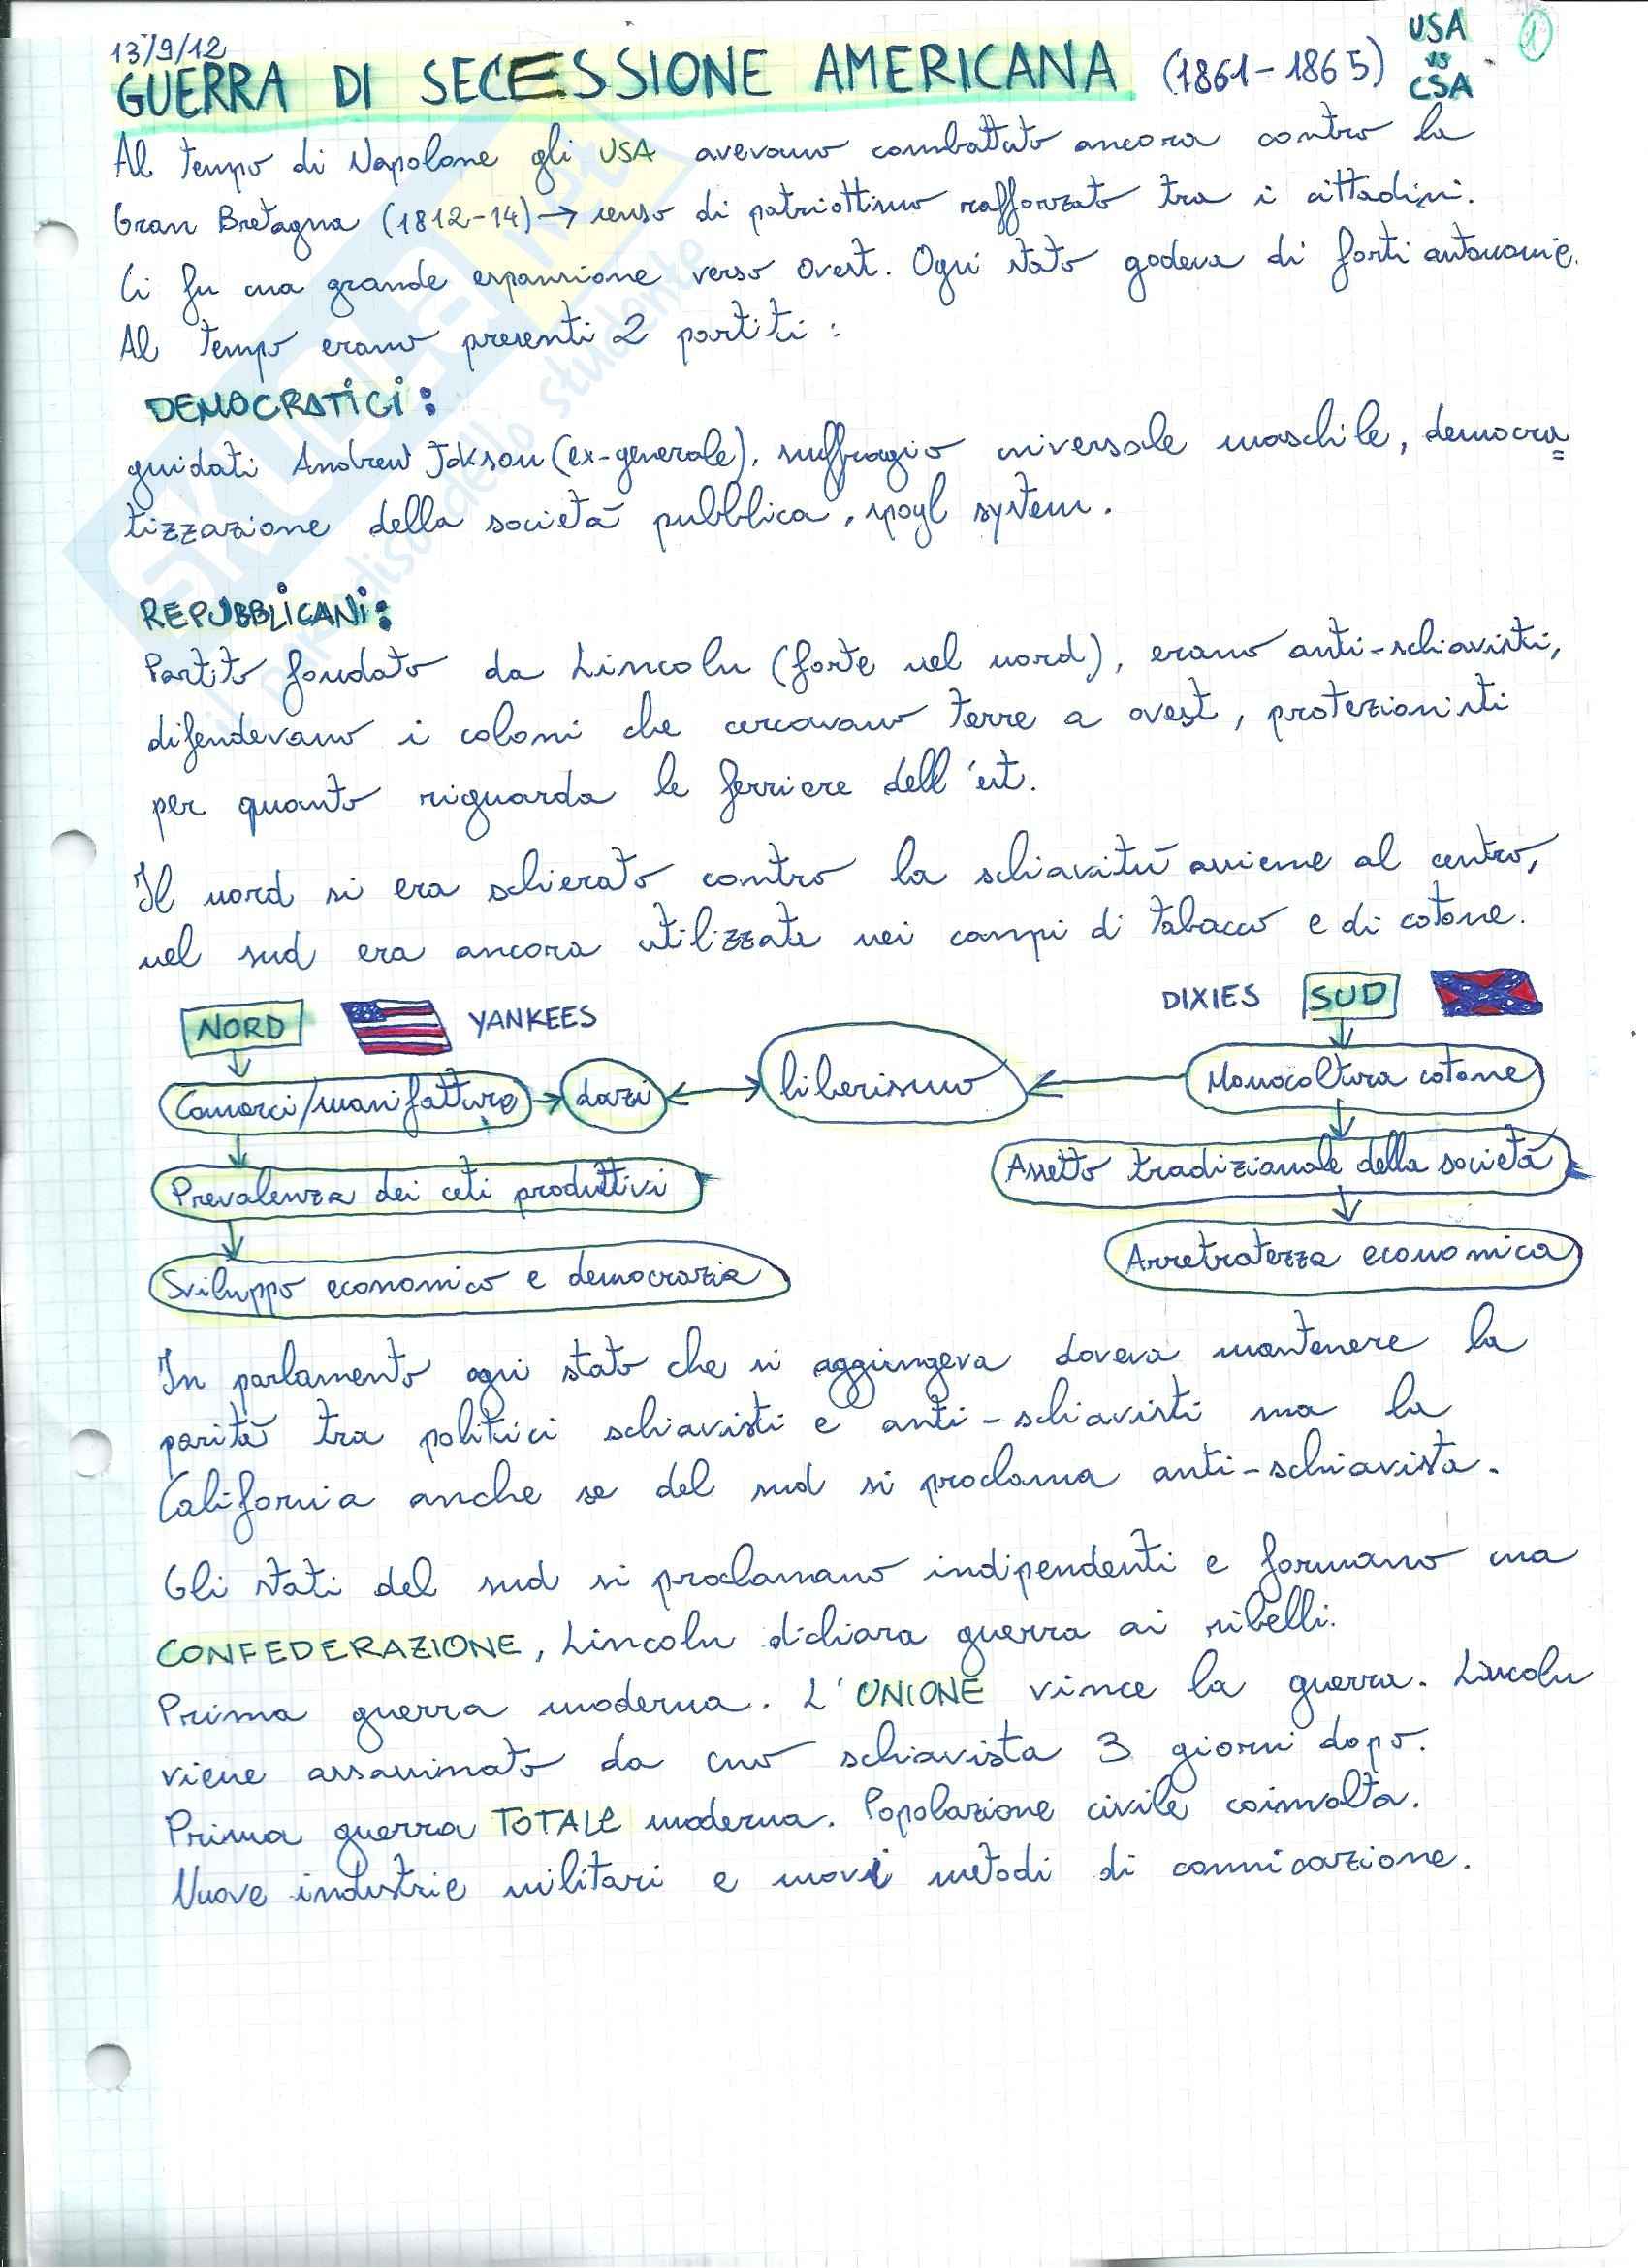 13/9/12
GUERRA DI SECESSIONE AMERICANA (1861-1865) USA vs CSA 1
Al tempo di Napolone gli USA avevano combattuto ancora contro la
Gran Bretagna (1812-14) → senso di patriottismo rafforzato tra i cittadini.
Ci fu una grande espansione verso ovest. Ogni stato godeva di forti autonomie.
Al tempo erano presenti 2 partiti:
DEMOCRATICI:
guidati Andrew Jakson (ex-generale), suffragio universale maschile, democra=
tizzazione della società pubblica, spogl system.
REPUBBLICANI:
Partito fondato da Lincoln (forte nel nord), erano anti-schiavisti,
difendevano i coloni che cercavano terre a ovest, protezionisti
per quanto riguarda le ferriere dell'est.
Il nord si era schierato contro la schiavitù assieme al centro,
nel sud era ancora utilizzata nei campi di tabacco e di cotone.
NORD YANKEES DIXIES SUD
Comerci/manifatture → dazi ↔ liberismo ← Monocoltura cotone
Prevalenza dei ceti produttivi Assetto tradizionale della società
Sviluppo economico e democrazia Arretratezza economica
In parlamento ogni stato che si aggiungeva doveva mantenere la
parità tra politici schiavisti e anti-schiavisti ma la
California anche se del sud si proclama anti-schiavista.
Gli stati del sud si proclamano indipendenti e formano una
CONFEDERAZIONE, Lincoln dichiara guerra ai ribelli.
Prima guerra moderna. L'UNIONE vince la guerra. Lincoln
viene assassinato da uno schiavista 3 giorni dopo.
Prima guerra TOTALE moderna. Popolazione civile coinvolta.
Nuove industrie militari e nuovi metodi di comunicazione.
SKUOLA.NET
il paradiso dello studente